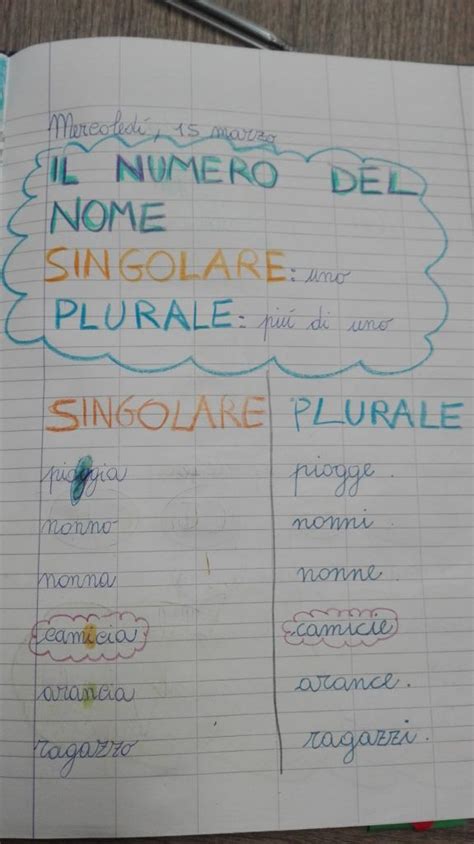 Mercoledí, 15 marzo
IL NUMERO DEL
NOME
SINGOLARE: uno
PLURALE: piú di uno
SINGOLARE PLURALE
pioggia piogge.
nonno nonni.
nonna nonne.
camicia camicie
arancia arance.
ragazzo ragazzi.